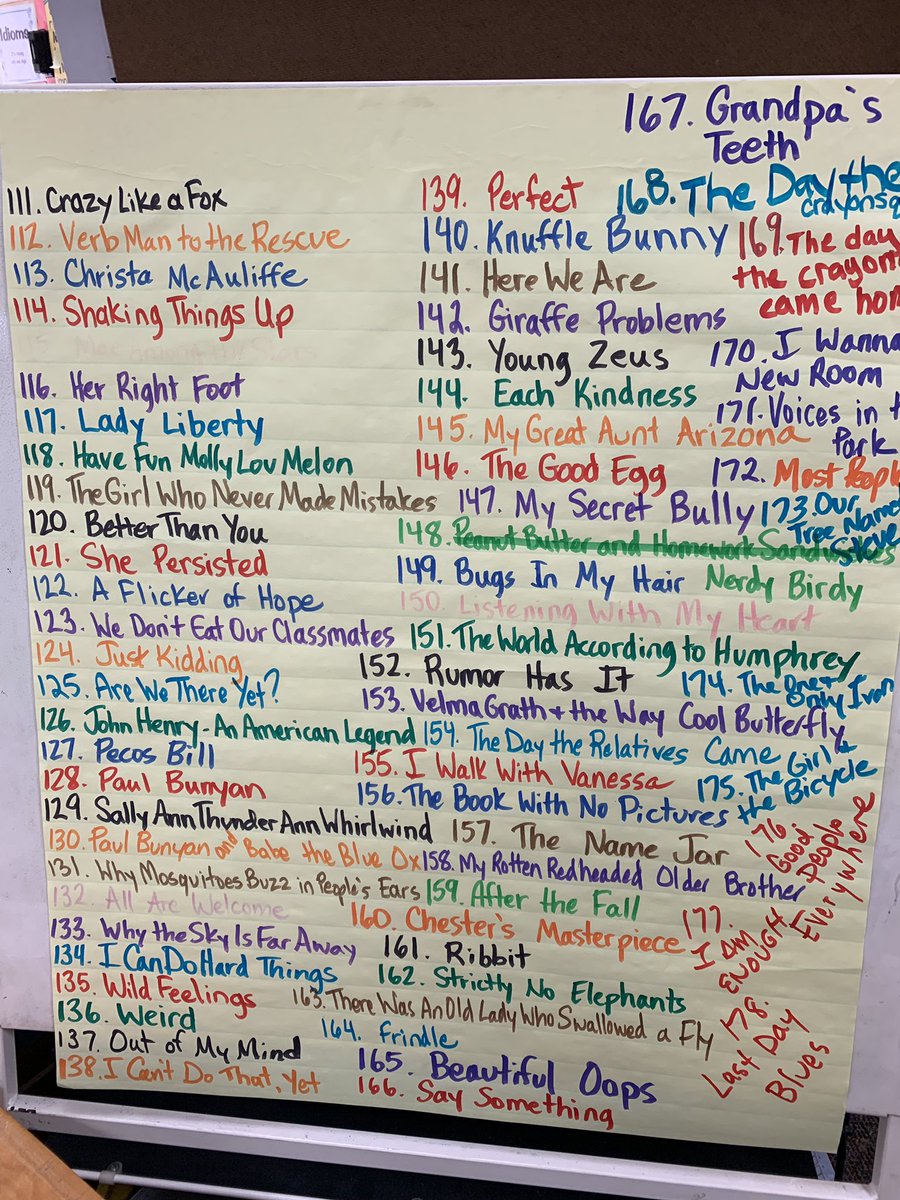 Idioms
111. Crazy Like a Fox
112. Verb Man to the Rescue
113. Christa McAuliffe
114. Shaking Things Up
116. Her Right Foot
117. Lady Liberty
118. Have Fun Molly Lou Melon
119. The Girl Who Never Made Mistakes
120. Better Than You
121. She Persisted
122. A Flicker of Hope
123. We Don't Eat Our Classmates
124. Just Kidding
125. Are We There Yet?
126. John Henry - An American Legend
127. Pecos Bill
128. Paul Bunyan
129. Sally Ann Thunder Ann Whirlwind
130. Paul Bunyan and Babe the Blue Ox
131. Why Mosquitoes Buzz in People's Ears
132. All Are Welcome
133. Why the Sky Is Far Away
134. I Can Do Hard Things
135. Wild Feelings
136. Weird
137. Out of My Mind
138. I Can't Do That, Yet
139. Perfect
140. Knuffle Bunny
141. Here We Are
142. Giraffe Problems
143. Young Zeus
144. Each Kindness
145. My Great Aunt Arizona
146. The Good Egg
147. My Secret Bully
148. Peanut Butter and Homework Sandwiches
Nerdy Birdy
149. Bugs In My Hair
150. Listening With My Heart
151. The World According to Humphrey
152. Rumor Has It
153. Velma Grath + the Way Cool Butterfly
154. The Day the Relatives Came
155. I Walk With Vanessa
156. The Book With No Pictures
157. The Name Jar
158. My Rotten Redheaded Older Brother
159. After the Fall
160. Chester's Masterpiece
161. Ribbit
162. Strictly No Elephants
163. There Was An Old Lady Who Swallowed a Fly
164. Frindle
165. Beautiful Oops
166. Say Something
167. Grandpa's
Teeth
168. The Day the
169. The day
the crayons
came
170. I Wanna
New Room
171. Voices in
Park
172. Most People
173. Our
Tree Named
Steve
174. The One +
Only Ivan
175. The Girl &
the Bicycle
176.
Good
People
Everywhere
177.
I am
ENOUGH
178.
Last Day
Blues